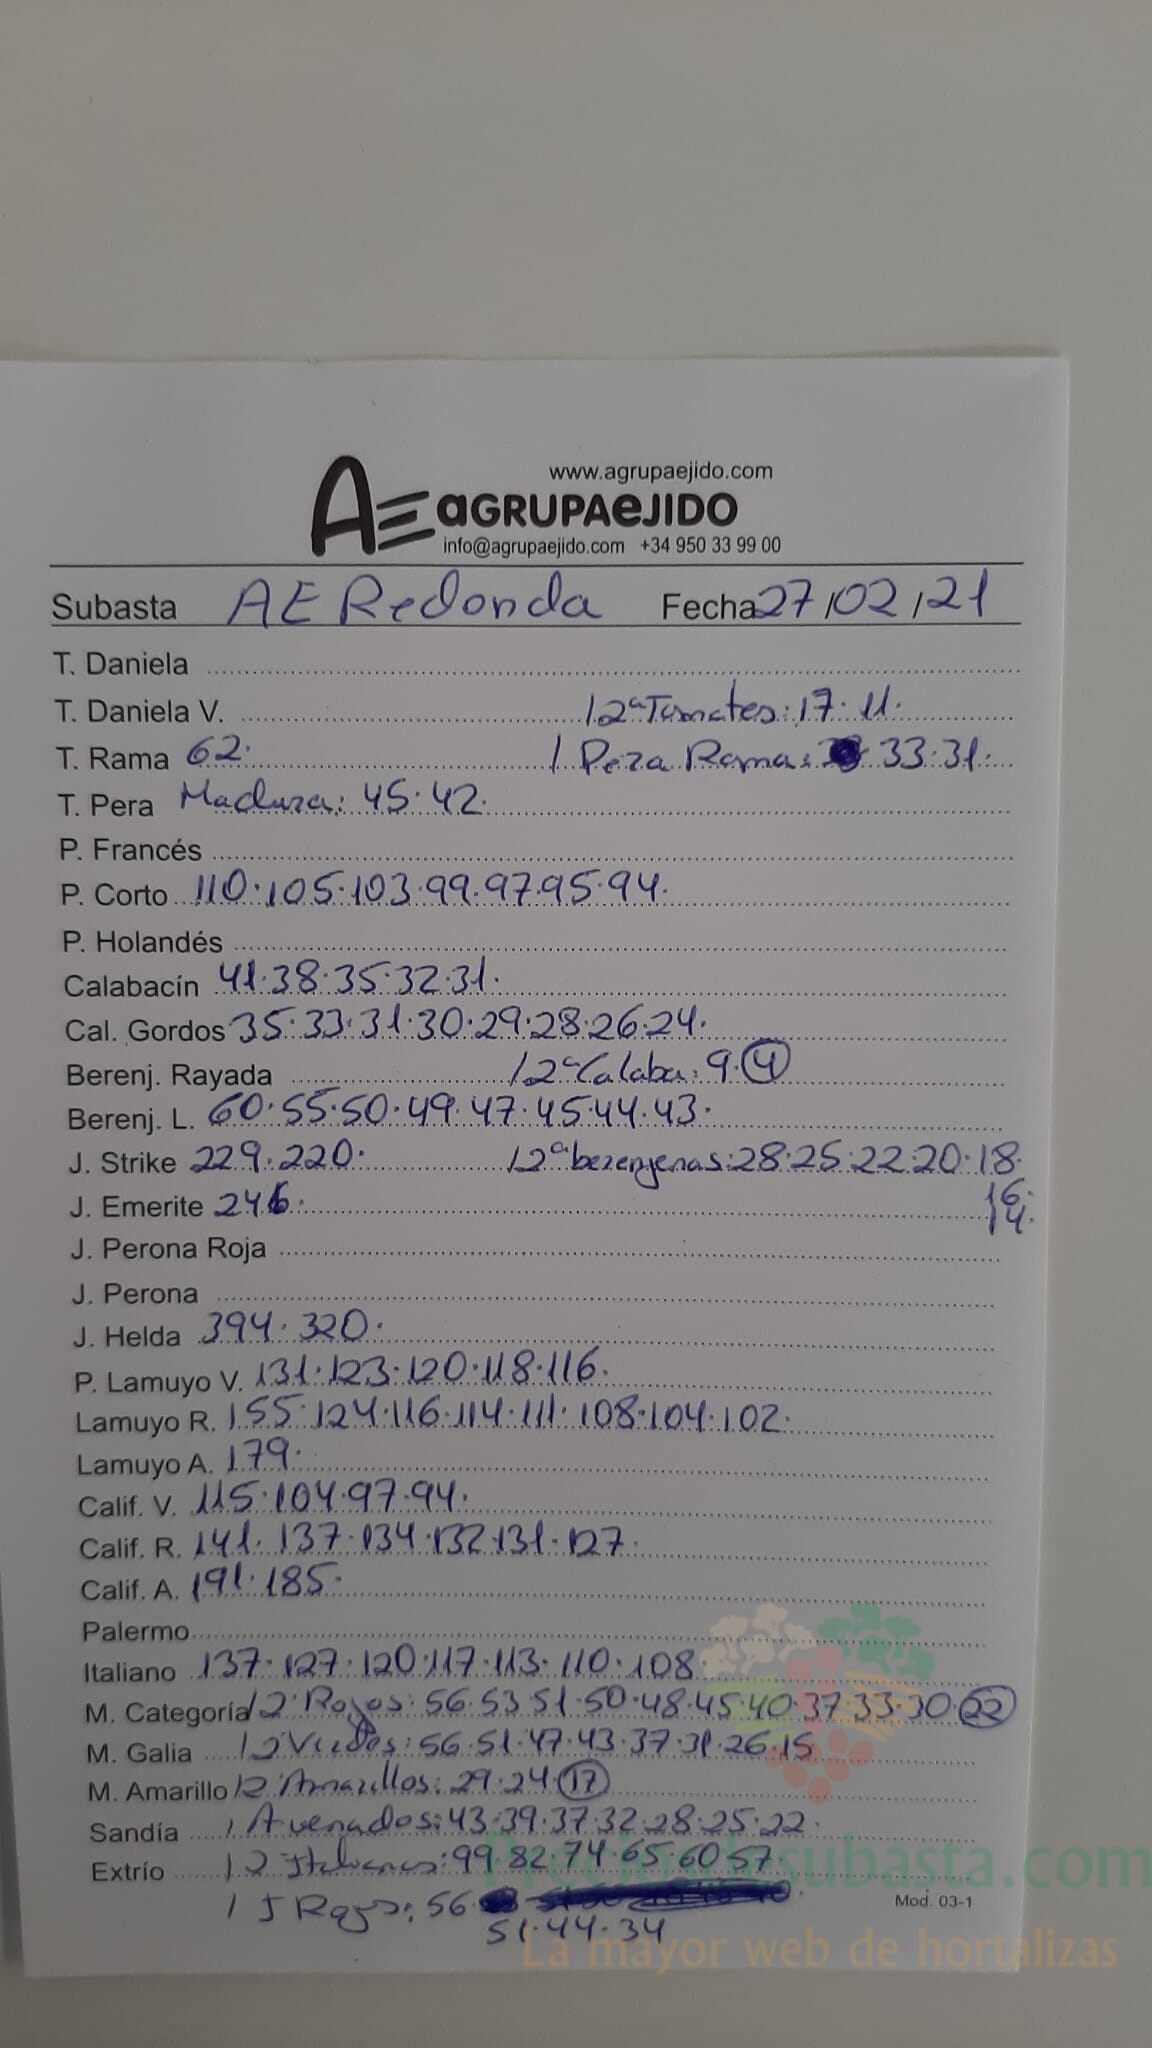 www.agrupaejido.com
AE aGRUPAeJIDO
info@agrupaejido.com +34 950 33 99 00
Subasta AE Redonda Fecha 27/02/21
T. Daniela
T. Daniela V. / 2ª Tomates: 17· 11·
T. Rama 62· / Pera Rama: 33·31·
T. Pera Madura: 45·42·
P. Francés
P. Corto 110·105·103·99·97·95·94·
P. Holandés
Calabacín 41·38·35·32·31·
Cal. Gordos 35·33·31·30·29·28·26·24·
Berenj. Rayada / 2ª Calaba: 9·4
Berenj. L. 60·55·50·49·47·45·44·43·
J. Strike 229·220· / 2ª berenjenas: 28·25·22·20·18·
16·
J. Emerite 246· 14·
J. Perona Roja
J. Perona
J. Helda 394·320·
P. Lamuyo V. 131·123·120·118·116·
Lamuyo R. 155·124·116·114·111·108·104·102·
Lamuyo A. 179·
Calif. V. 115·104·97·94·
Calif. R. 141·137·134·132·131·127·
Calif. A. 191·185·
Palermo
Italiano 137·127·120·117·113·110·108
M. Categoría / 2ª Rojos: 56·53·51·50·48·45·40·37·33·30·22
M. Galia / 2 Verdes: 56·51·47·43·37·31·26·15
M. Amarillo / 2 Amarillos: 29·24·17
Sandía / Avenados: 43·39·37·32·28·25·22·
Extrío / 2 Italianos: 99·82·74·65·60·57·
/ J Rojos: 56·
51·44·34
Mod. 03-1
Preciosdesubasta.com
La mayor web de hortalizas